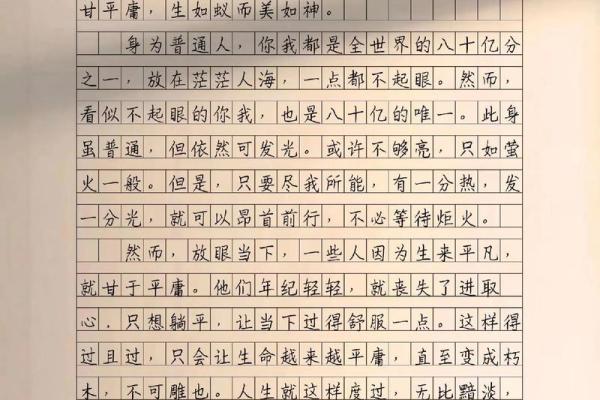 甘平庸，生如蚁而美如神。
身为普通人，你我都是全世界的八十亿分
之一，放在茫茫人海，一点都不起眼。然而，
看似不起眼的你我，也是八十亿的唯一。此身
虽普通，但依然可发光。或许不够亮，只如萤
火一般。但是，只要尽我所能，有一分热，发
一分光，就可以昂首前行，不必等待炬火。
然而，放眼当下，一些人因为生来平凡，
就甘于平庸。他们年纪轻轻，就丧失了进取
心．只想躺平，让当下过得舒服一点。这样得
过且过，只会让生命越来越平庸，直至变成朽
木，不可雕也。人生就这样度过，无比黯淡，